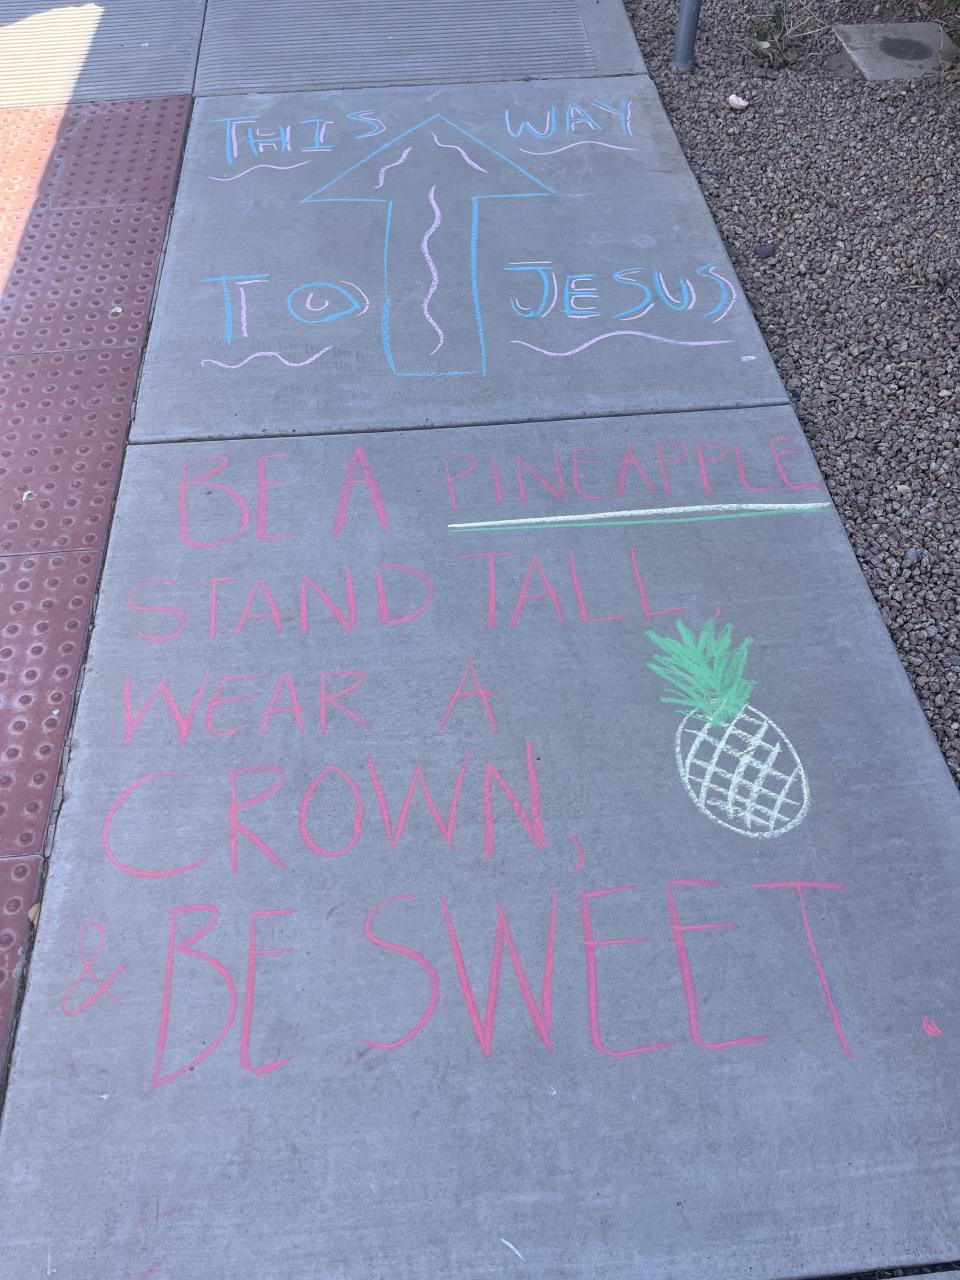 THIS WAY
TO JESUS
BE A PINEAPPLE
STAND TALL,
WEAR A
CROWN,
& BE SWEET.